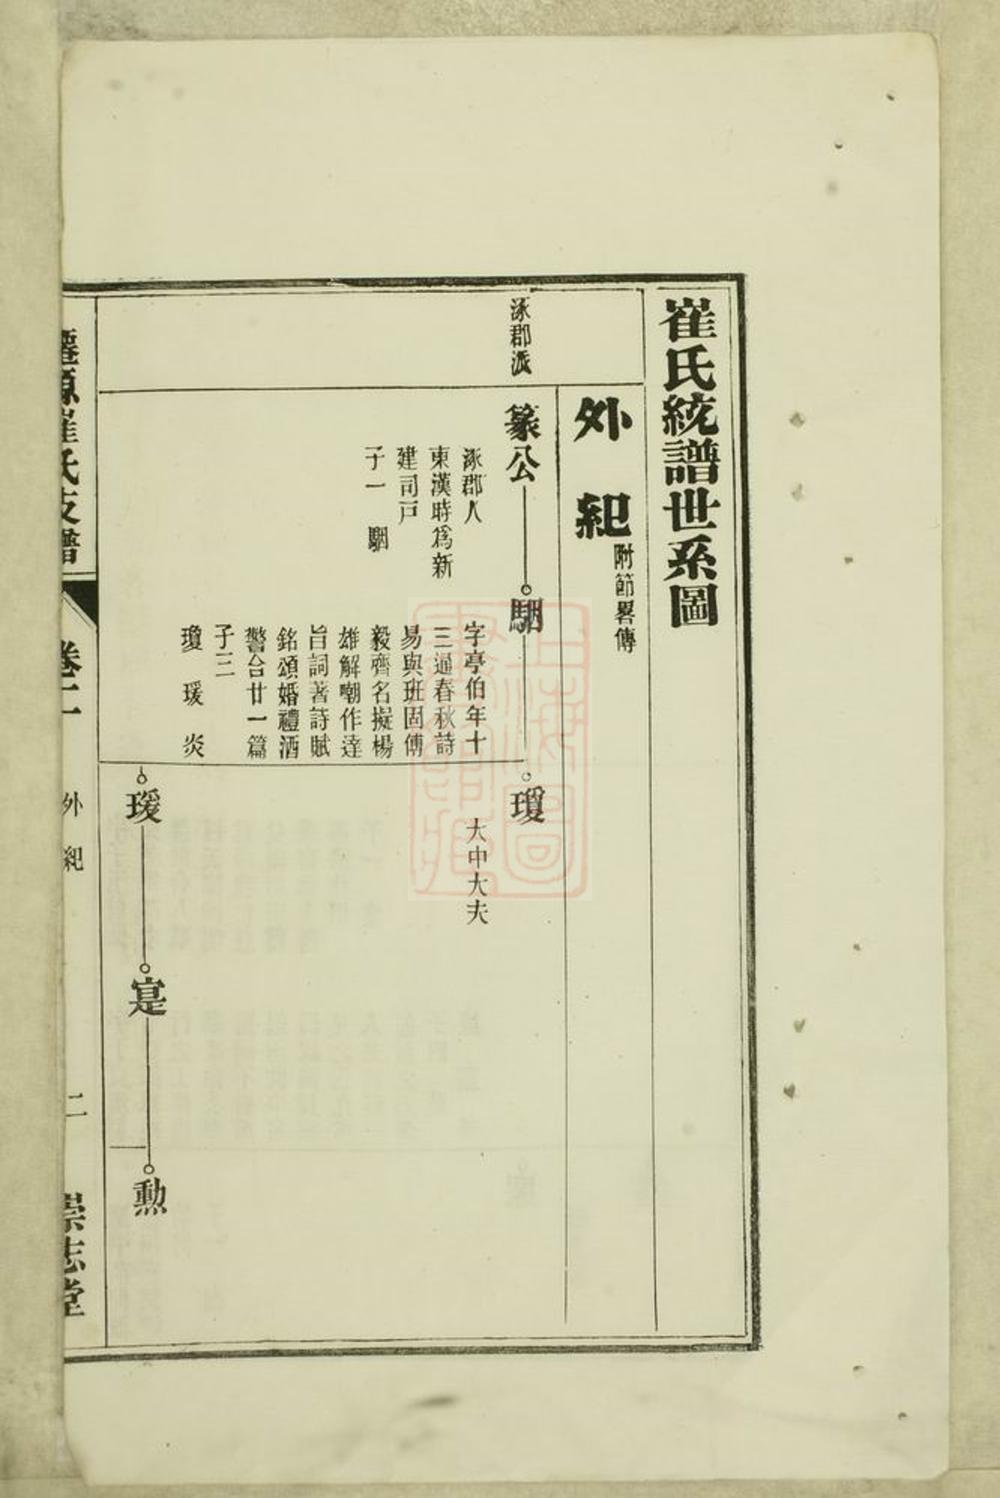 崔氏統譜世系圖
外紀
附節畧傳
涿郡派
篆公
涿郡人
東漢時爲新
建司戸
子一　駰
駰
字亭伯年十
三通春秋詩
易與班固傅
毅齊名擬楊
雄解嘲作達
旨詞著詩賦
銘頌婚禮酒
警合廿一篇
子三
瓊　瑗　炎
瓊
大中大夫
瑗
寔
勲
崔氏支譜
卷一
外紀
二
崇志堂
上海圖書館藏